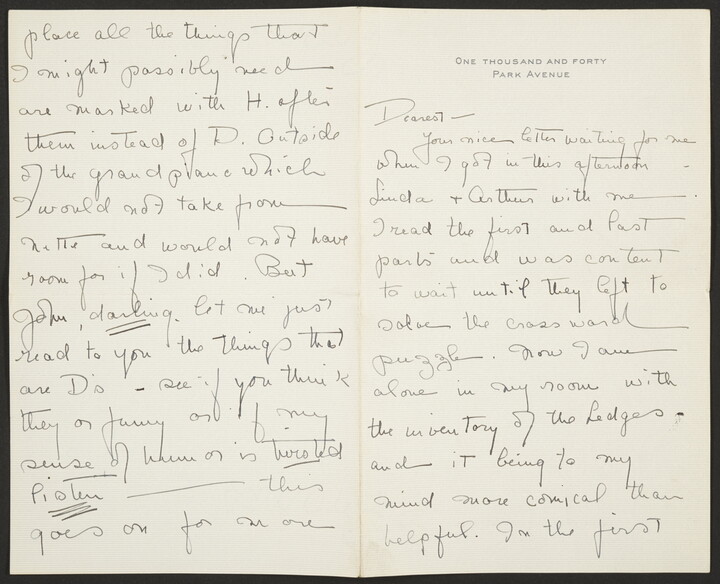 ONE THOUSAND AND FORTY
PARK AVENUE
Dearest —
Your nice letter waiting for me
when I got in this afternoon -
Linda + Arthur with me.
I read the first and last
parts and was content
to wait until they left to
solve the crossword
puzzle. Now I am
alone in my room with
the inventory of the Ledges -
and it being to my
mind more comical than
helpful. In the first
place all the things that
I might possibly need
are marked with H. after
them instead of D. Outside
of the grand piano which
I would not take from
and would not have
room for if I did. But
John, darling. let me just
read to you the things that
are D's - see if you think
they are funny or if my
sense of humor is twisted
Listen ——— this
goes on for more